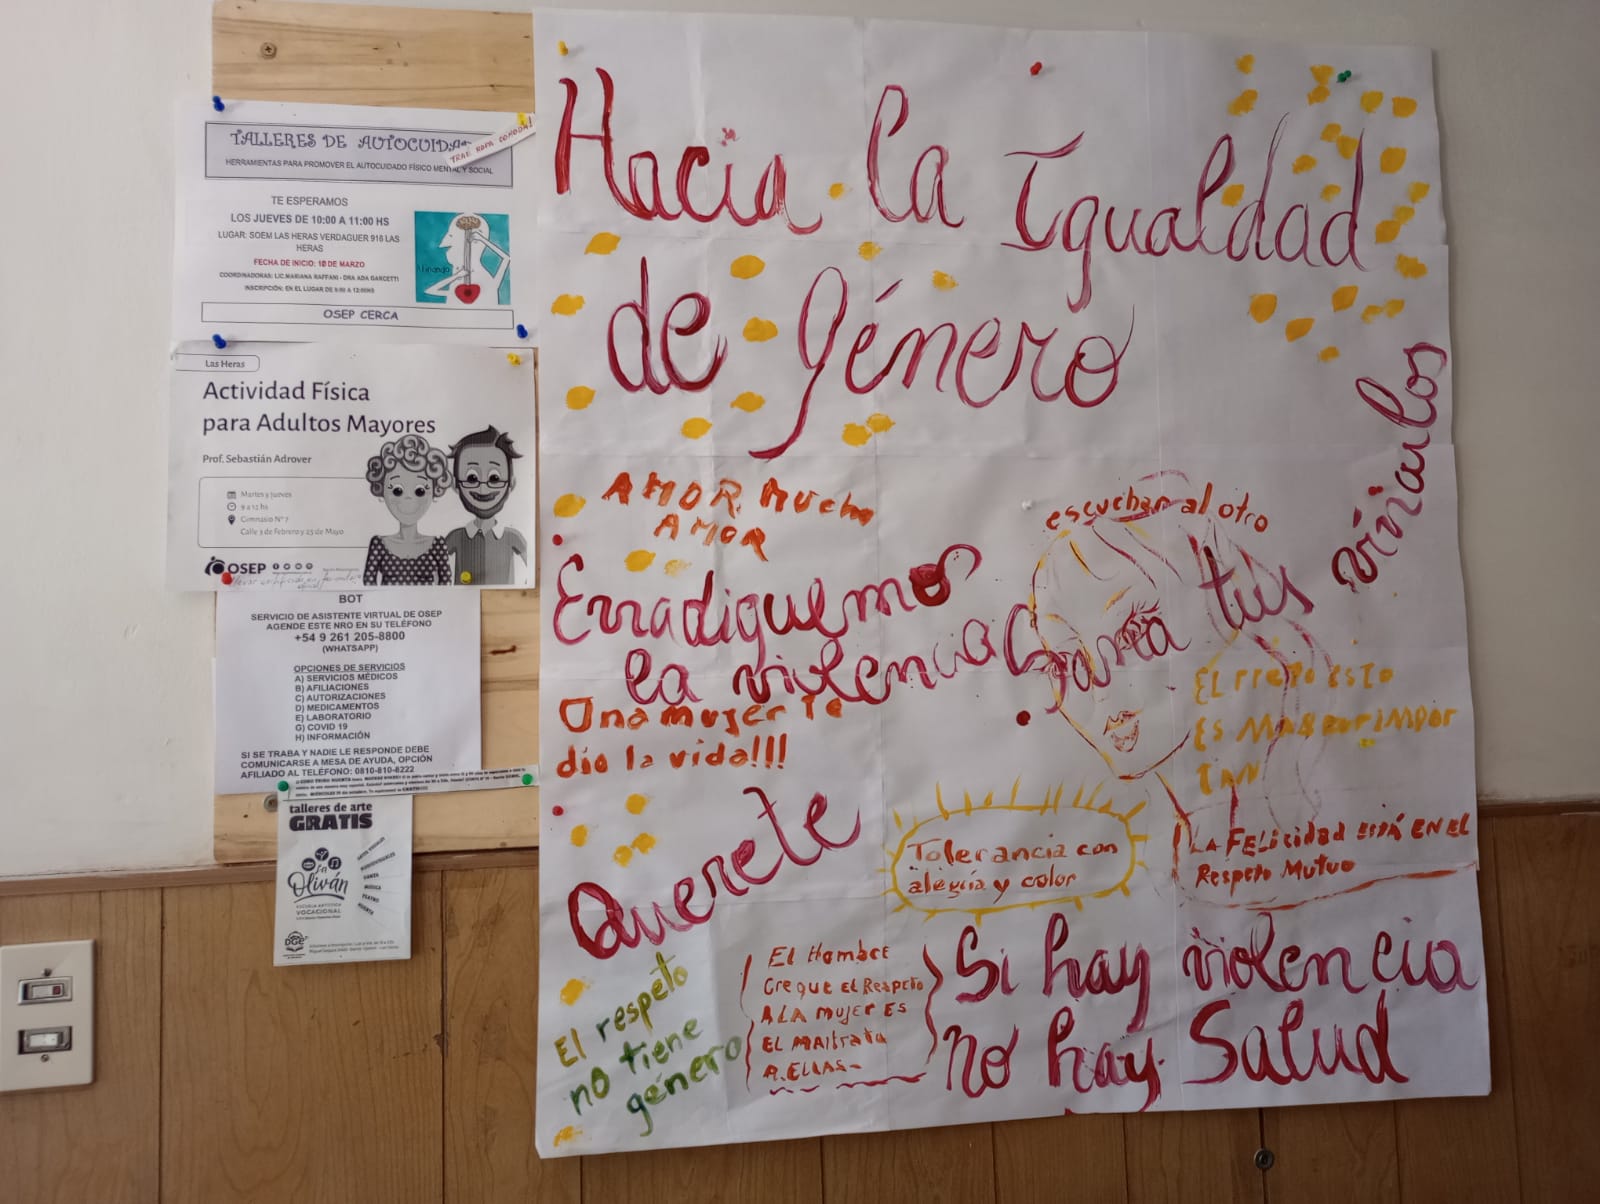 TALLERES DE AUTOCUIDA
TRAE ROPA COMODA!
HERRAMIENTAS PARA PROMOVER EL AUTOCUIDADO FÍSICO MENTAL Y SOCIAL
TE ESPERAMOS
LOS JUEVES DE 10:00 A 11:00 HS
LUGAR: SOEM LAS HERAS VERDAGUER 916 LAS
HERAS
FECHA DE INICIO: 10 DE MARZO
COORDINADORAS: LIC.MARIANA RAFFANI - DRA ADA GARCETTI
INSCRIPCIÓN: EN EL LUGAR DE 9:00 A 12:00HS
OSEP CERCA
Las Heras
Actividad Física
para Adultos Mayores
Prof. Sebastián Adrover
Martes y jueves
9 a 12 hs
Gimnasio N° 7
Calle 3 de Febrero y 25 de Mayo
OSEP
BOT
SERVICIO DE ASISTENTE VIRTUAL DE OSEP
AGENDE ESTE NRO EN SU TELÉFONO
+54 9 261 205-8800
(WHATSAPP)
OPCIONES DE SERVICIOS
A) SERVICIOS MÉDICOS
B) AFILIACIONES
C) AUTORIZACIONES
D) MEDICAMENTOS
E) LABORATORIO
G) COVID 19
H) INFORMACIÓN
SI SE TRABA Y NADIE LE RESPONDE DEBE
COMUNICARSE A MESA DE AYUDA, OPCIÓN
AFILIADO AL TELÉFONO: 0810-810-8222
talleres de arte
GRATIS
ARTES VISUALES
AUDIOVISUALES
DANZA
MÚSICA
TEATRO
La
Oliván
ESCUELA ARTÍSTICA
VOCACIONAL
DGE
Hacia la Igualdad
de género
AMOR, Mucho
AMOR
escuchar al otro
Erradiquemos
la violencia
Sana tus vínculos
Una mujer te
dio la vida!!!
ES MAS
IMPOR
TAN
Querete
Tolerancia con
alegría y color
LA FELICIDAD ESTÁ EN EL
Respeto Mutuo
El respeto
no tiene
género
El Hombre
Cre que El Respeto
A LA MUJER ES
EL MAltrata
A.ELLAS-
Si hay violencia
no hay Salud